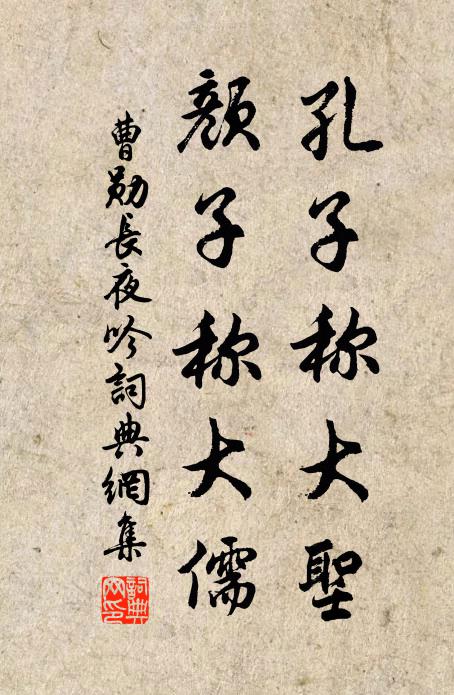 孔子称大聖
顏子称大儒
曹勛長夜吟詞典網集
詞典网印